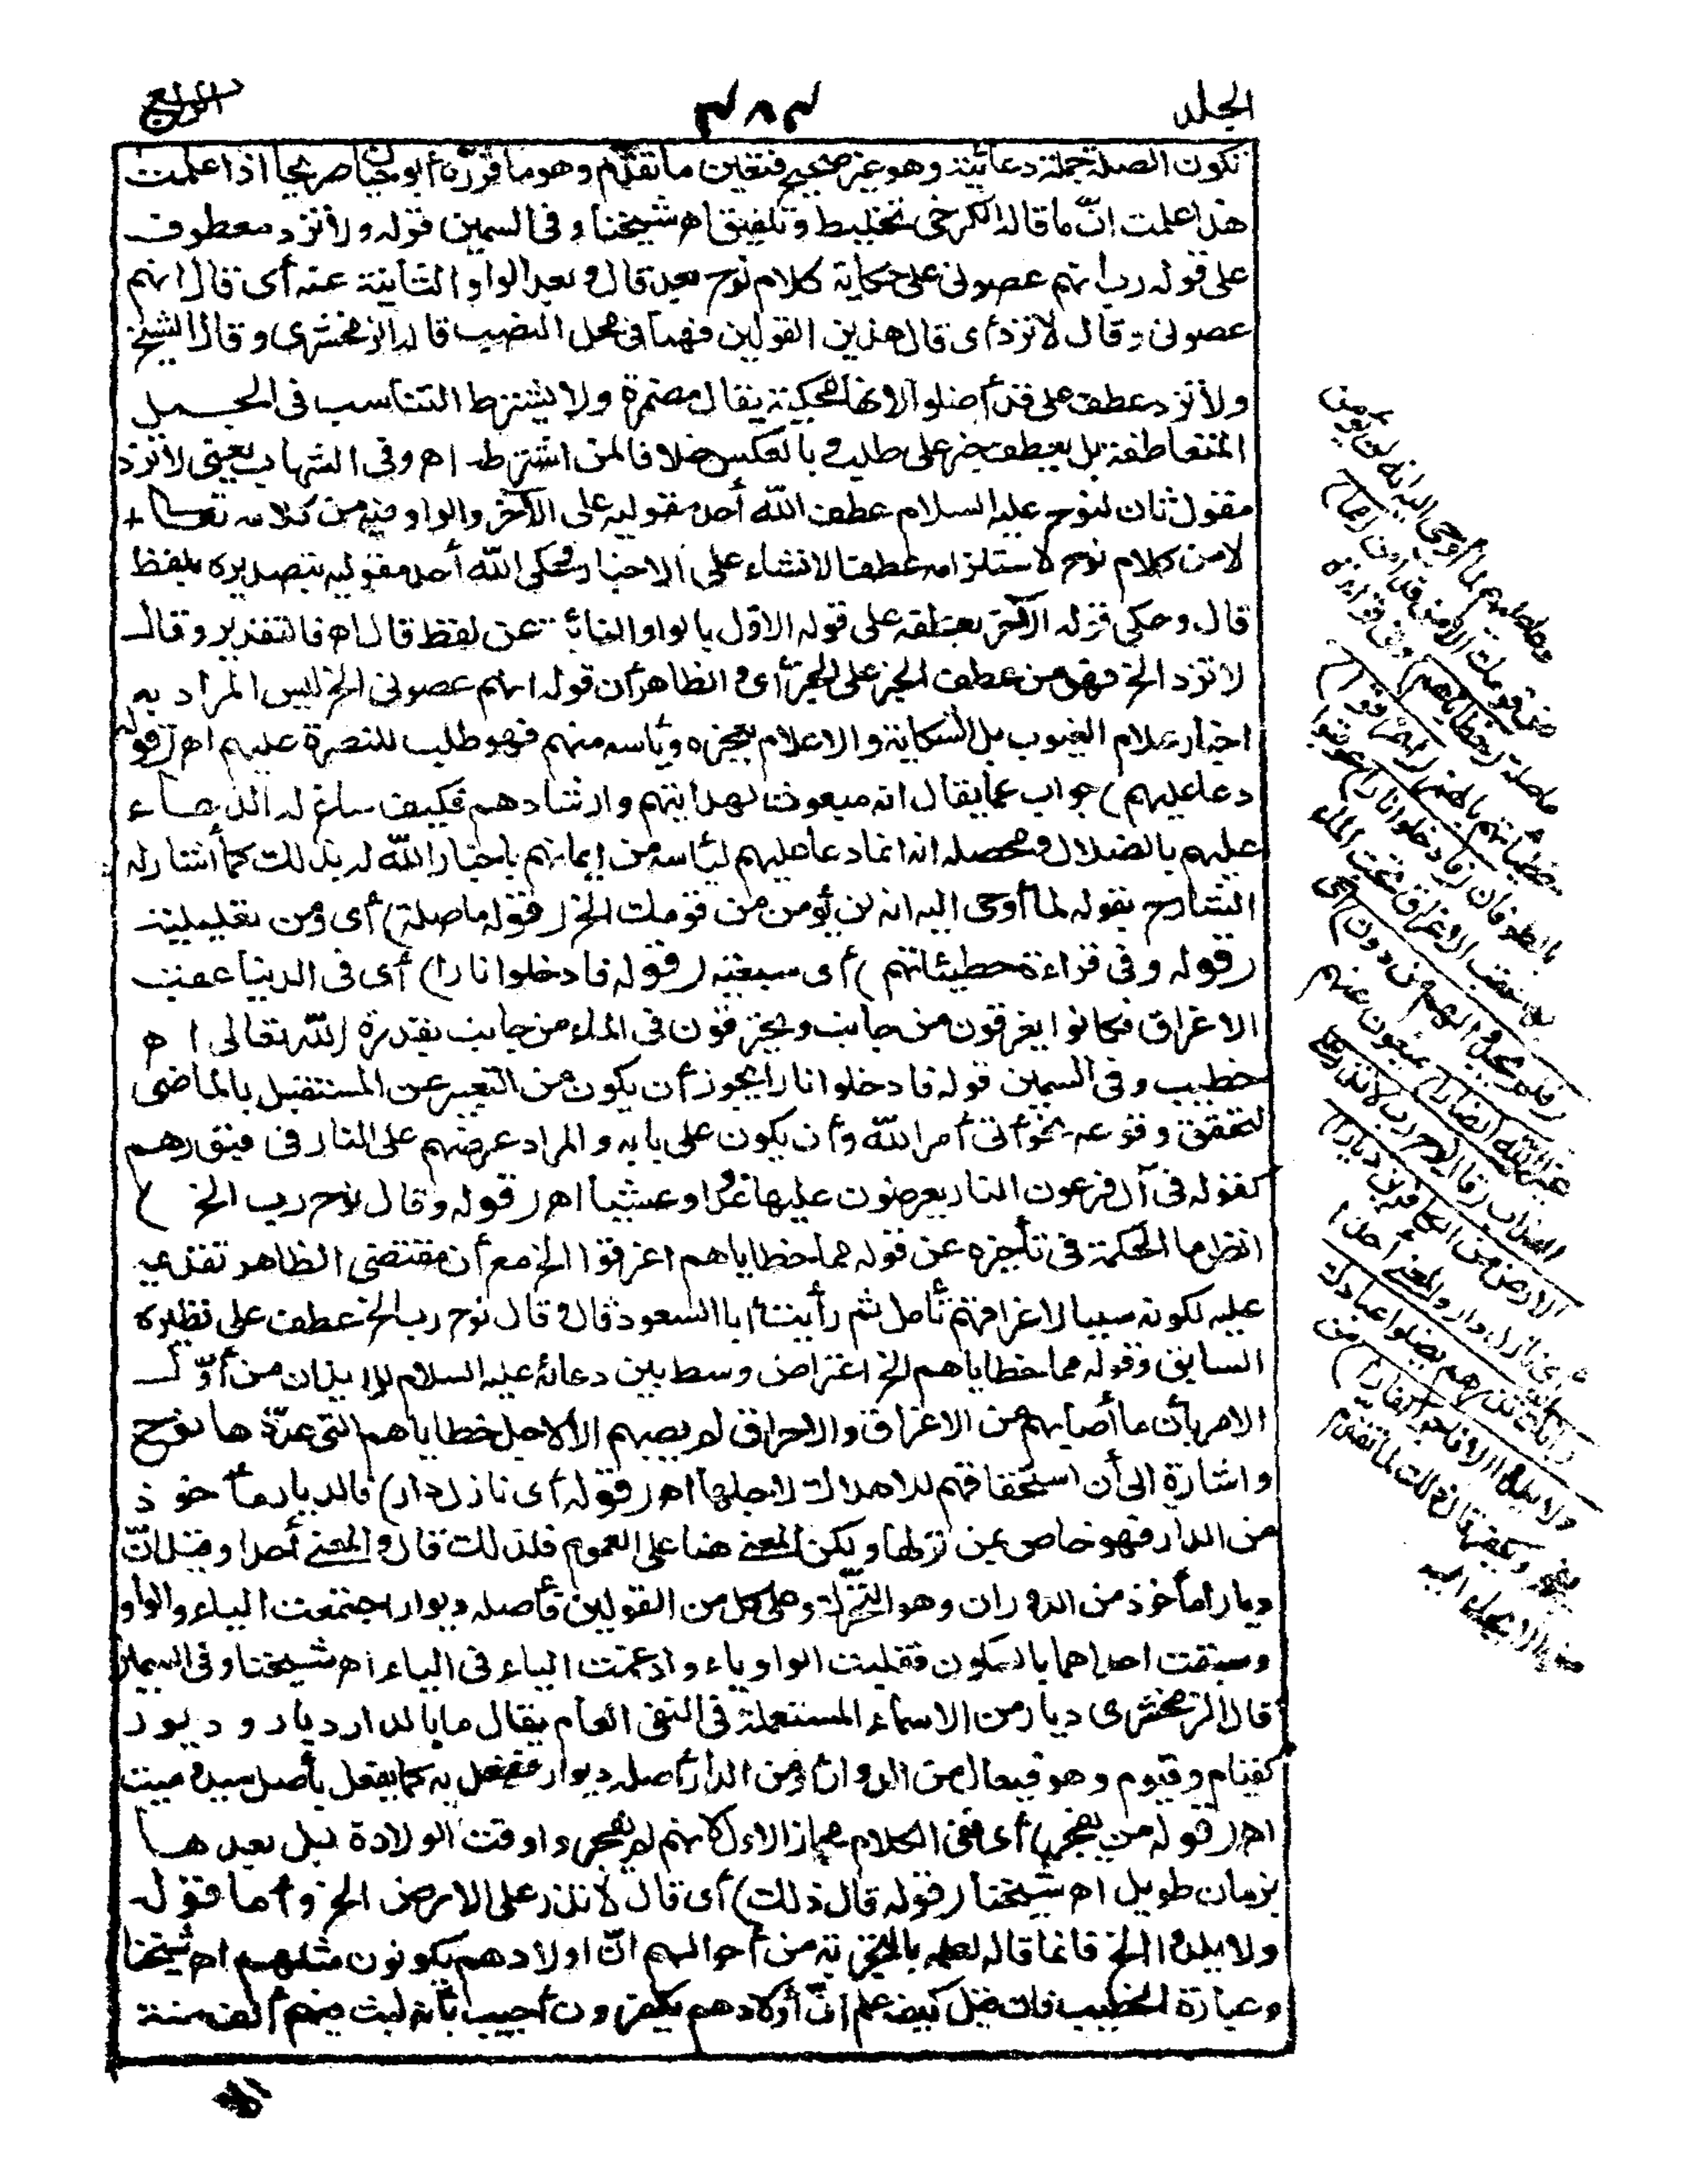 الجلد
٣٨٣
الرابع
تكون الصلة جملة دعائية وهو غير صحيح فتعين ما تقدم وهو ما قرره أبو حيان صريحا اذا علمت
هذا علمت انّ ما قاله الكرخى تخليط وتلفيق اه شيخنا وفى السمين قوله ولا تزد معطوف
على قوله رب انهم عصونى على حكاية كلام نوح بعد قال وبعد الواو النائبة عنه أى قال انهم
عصونى وقال لا تزد أى قال هذين القولين فهما فى محل النصب قاله الزمخشرى وقال الشيخ
ولا تزد عطف على قد أضلوا لانها محكية بقال مضمرة ولا يشترط التناسب فى الجمل
المتعاطفة بل يعطف خبر على طلب وبالعكس خلافا لمن اشترطه اه وفى الشهاب يعنى لا تزد
مقول ثان لنوح عليه السلام عطف الله أحد مقوليه على الآخر والواو فيه من كلامه تعالى
لا من كلام نوح لاستلزامه عطف الانشاء على الاخبار فحكى الله أحد مقوليه بتصديره بلفظ
قال وحكى قوله الآخر بعطفه على قوله الاول بالواو النائبة عن لفظ قال اه فالتقدير وقال
لا تزد الخ فهو من عطف الخبر على الخبر أى والظاهر أن قوله انهم عصونى الخ ليس المراد به
اخبار علام الغيوب بل الشكاية والاعلام بعجزه ويأسه منهم فهو طلب للنصرة عليهم اه (قوله
دعا عليهم) جواب عما يقال انه مبعوث لهدايتهم وارشادهم فكيف ساغ له الدعاء
عليهم بالضلال ومحصله انه انما دعا عليهم ليأسه من إيمانهم باخبار الله له بذلك كما أشار له
الشارح بقوله لما أوحى اليه انه لن يؤمن من قومك الخ (قوله ما صلة) أى ومن تعليلية
(قوله وفى قراءة خطيئاتهم) أى سبعية (قوله فادخلوا نارا) أى فى الدنيا عقب
الاغراق فكانوا يغرقون من جانب ويحترقون فى الماء من جانب بقدرة الله تعالى اه
خطيب وفى السمين قوله فادخلوا نارا يجوز أن يكون من التعبير عن المستقبل بالماضى
لتحقق وقوعه نحو أتى أمر الله وأن يكون على بابه والمراد عرضهم على النار فى قبورهم
كقوله فى آل فرعون النار يعرضون عليها غدوا وعشيا اه (قوله وقال نوح رب الخ)
انظر ما الحكمة فى تأخيره عن قوله مما خطاياهم اغرقوا الخ مع أن مقتضى الظاهر تقديمه
عليه لكونه سببا لاغراقهم تأمل ثم رأيت أبا السعود قال وقال نوح رب الخ عطف على نظيره
السابق وقوله مما خطاياهم الخ اعتراض وسط بين دعائه عليه السلام للايذان من أوّل
الامر بأن ما أصابهم من الاغراق والاحراق لم يصبهم الا لاجل خطاياهم التى عدّدها نوح
واشارة الى أن استحقاقهم للاهلاك لاجلها اه (قوله أى نازل دار) فالديار مأخوذ
من الدار فهو خاص بمن نزلها ولكن المعنى هنا على العموم فلذلك قال والمعنى أحدا وقيل انّ
ديارا مأخوذ من الدوران وهو التحرّك وعلى كل من القولين فأصله ديوار اجتمعت الياء والواو
وسبقت احداهما بالسكون فقلبت الواو ياء وادغمت الياء فى الياء اه شيخنا وفى السمين
قال الزمخشرى ديار من الاسماء المستعملة فى النفى العام يقال ما بالدار ديار وديور
كقيام وقيوم وهو فيعال من الدوران أو من الدار أصله ديوار ففعل به كما يفعل بأصل سيد وميت
اه (قوله من يفجر) أى ففى الكلام مجاز الاول لانهم لم يفجروا وقت الولادة بل بعدها
بزمان طويل اه شيخنا (قوله قال ذلك) أى قال لا تذر على الارض الخ وأما قوله
ولا يلدوا الخ فانما قاله لعلمه بالتجربة من أحوالهم انّ اولادهم يكونون مثلهم اه شيخنا
وعبارة الخطيب فان قيل كيف علم انّ أولادهم يكفرون أجيب بأنه لبث فيهم ألف سنة
لما أوحى اليه انه لن يؤمن
من قومك الا من قد آمن
ما صلة (خطاياهم) وفى قراءة
خطيئاتهم بالهمز (اغرقوا)
بالطوفان (فادخلوا نارا) عوقبوا
بها عقب الاغراق تحت الماء
(فلم يجدوا لهم من دون) أى
غير (الله انصارا) يمنعون عنهم
العذاب (وقال نوح رب لا تذر على
الارض من الكافرين ديارا)
أى نازل دار والمعنى أحدا
(انك ان تذرهم يضلوا عبادك
ولا يلدوا الا فاجرا كفارا) من
يفجر ويكفر قال ذلك لما تقدم
من الايحاء اليه